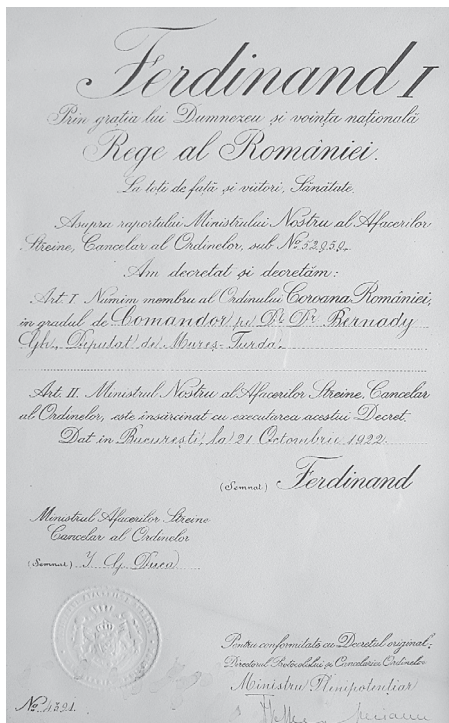 Ferdinand I
Prin grația lui Dumnezeu și voința națională
Rege al României.
La toți de față și viitori, Sănătate.
Asupra raportului Ministrului Nostru al Afacerilor
Streine, Cancelar al Ordinelor, sub No 52959.
Am decretat și decretăm:
Art. I Numim membru al Ordinului Coroana României,
în gradul de Comandor pe Dl Dr Bernady
Gh. Deputat de Mureș-Turda.
Art. II. Ministrul Nostru al Afacerilor Streine, Cancelar
al Ordinelor, este însărcinat cu executarea acestui Decret.
Dat în București, la 21 Octombrie 1922.
(Semnat) Ferdinand
Ministrul Afacerilor Streine
Cancelar al Ordinelor
(Semnat) I. G. Duca
Pentru conformitate cu Decretul original,
Directorul Protocolului și Cancelariei Ordinelor
Ministru Plenipotențiar
No 4321.